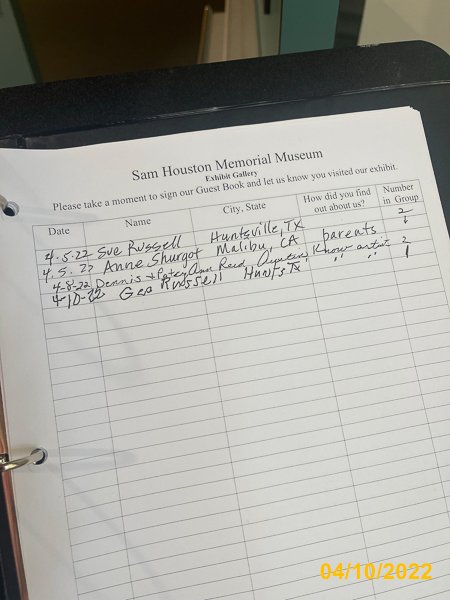 Sam Houston Memorial Museum
Exhibit Gallery
Please take a moment to sign our Guest Book and let us know you visited our exhibit.
Date Name City, State How did you find out about us? Number in Group
4.5.22 Sue Russell Huntsville, TX 2
4.5.22 Anne Shurgot Malibu, CA parents
4-8-22 Dennis + Patsy Ann Reid Know artist 2
4-10-22 Geo Russell Hunts Tx " " 1
04/10/2022